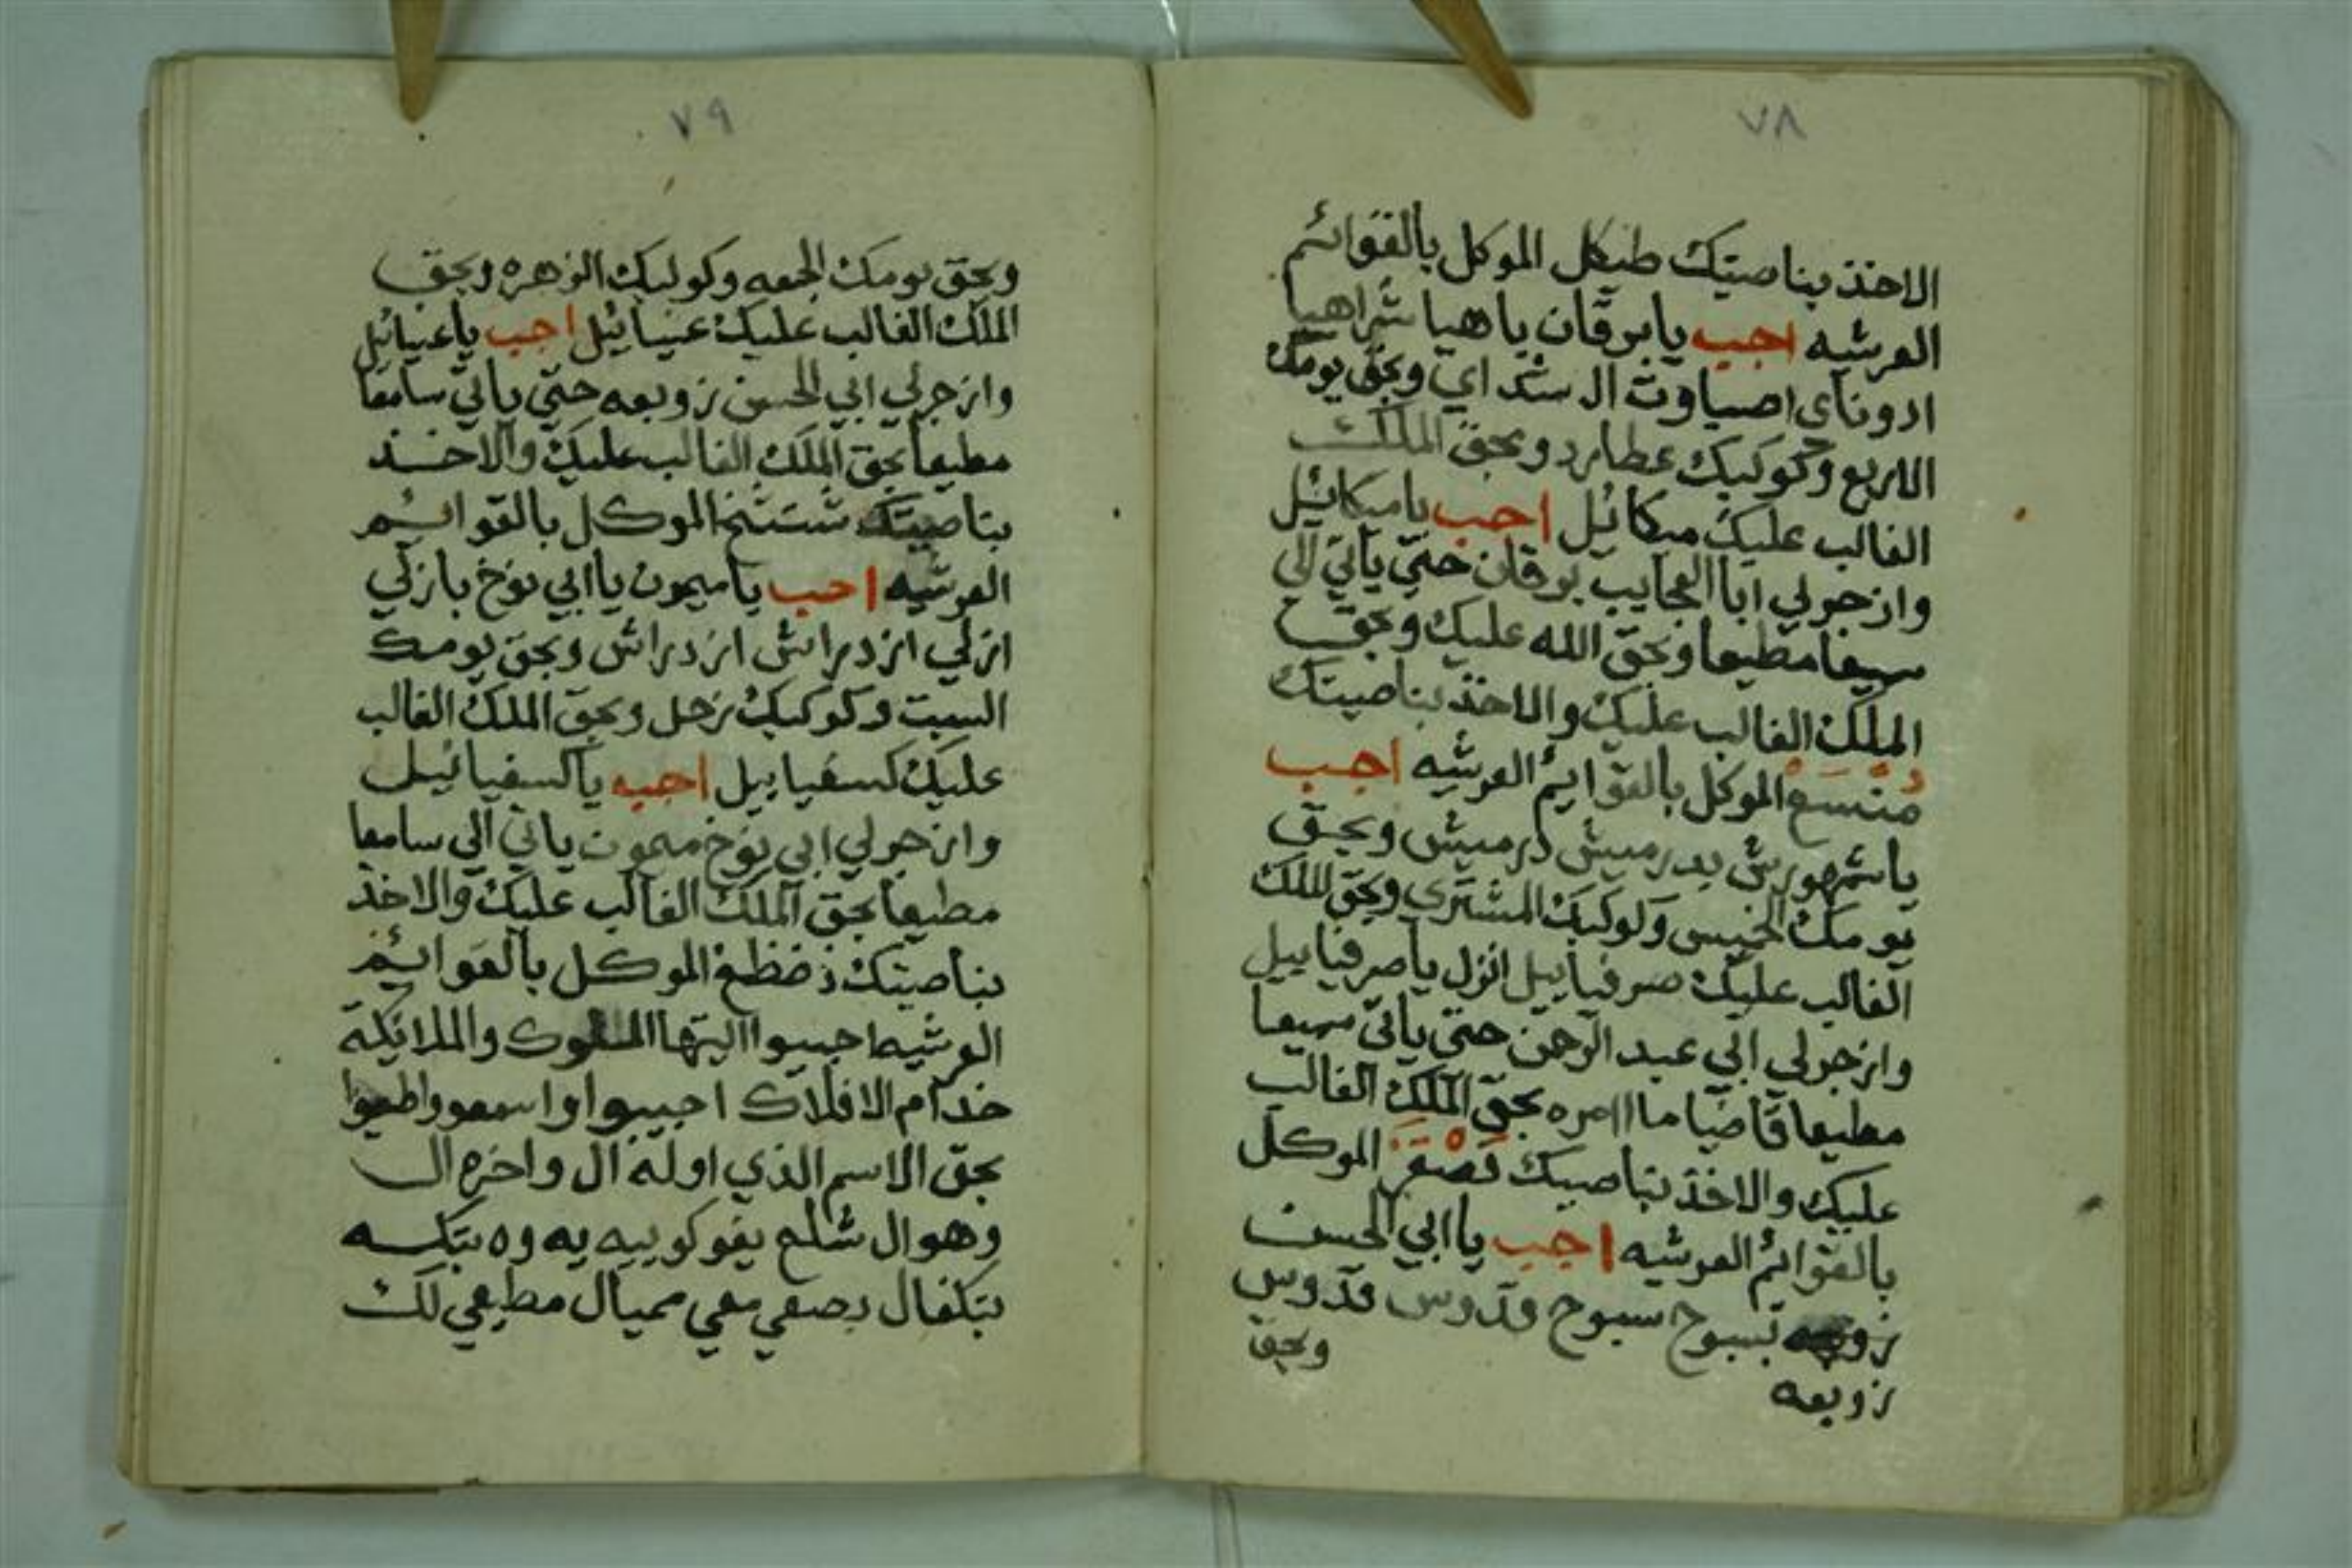 ٧٨
الاخذ بناصيتك طيكل الموكل بالقوائم
العرشيه اجب يابرقان ياهيا شراهيا
ادوناى اصباوت ال شداي وبحق يومك
الاربع وكوكبك عطارد وبحق الملك
الغالب عليك ميكائيل اجب ياميكائيل
وازجرلي ابا العجايب برقان حتي ياتي الي
سميعا مطيعا وبحق الله عليك وبحق
الملك الغالب عليك والاخذ بناصيتك
الموكل بالقوايم العرشيه اجب
ياشمهورش بدرميش درميش وبحق
يومك الخميس وكوكبك المشتري وبحق الملك
الغالب عليك صرفياييل انزل ياصرفياييل
وازجرلي الي عبد الرحمن حتي ياتي سميعا
مطيعا قاضيا ما اامره بحق الملك الغالب
عليك والاخذ بناصيتك الموكل
بالقوائم العرشيه اجب ياابي الحسن
زوبعه بسبوح سبوح قدوس قدوس
زوبعه
وبحق
٧٩
وبحق يومك الجمعه وكوكبك الزهره وبحق
الملك الغالب عليك عنيائيل اجب ياعنيائيل
وازجرلي ابي الحسن زوبعه حتي ياتي سامعا
مطيعا بحق الملك الغالب عليك والاخذ
بناصيتك شتثخ الموكل بالقوائم
العرشيه اجب ياميمون ياابي نوخ بازلي
ازلي ازدراش ازدراش وبحق يومك
السبت وكوكبك زحل وبحق الملك الغالب
عليك كسفياييل اجب ياكسفيائيل
وازجرلي ابي نوخ ميمون ياتي الي سامعا
مطيعا بحق الملك الغالب عليك والاخذ
بناصيتك ذضظغ الموكل بالقوائم
العرشيه اجيبوا ايتها الملوك والملائكة
خدام الافلاك اجيبوا واسمعو واطيعوا
بحق الاسم الذي اوله ال واخره ال
وهو ال شلع يعو كوبيه يه وه بتكه
بتكفال بصعي معي مميال مطيعي لك